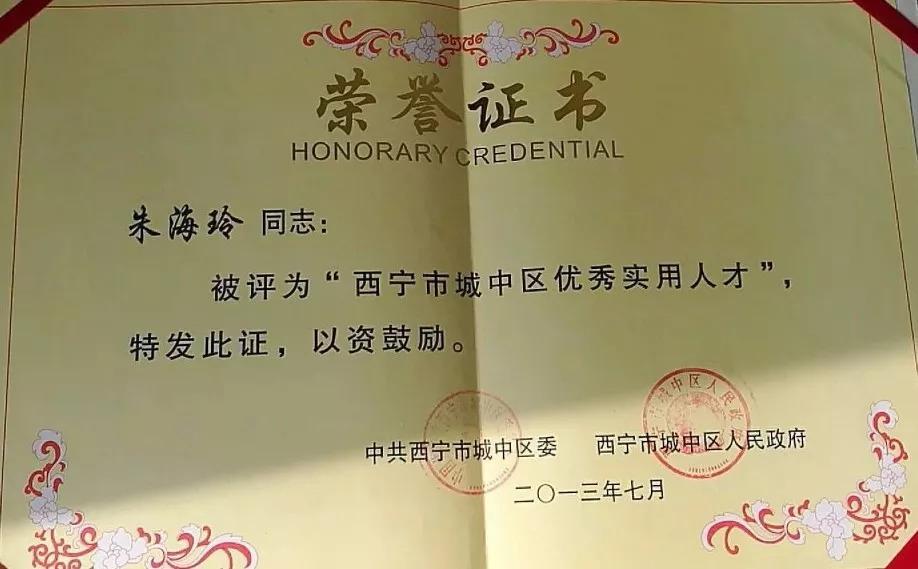 荣誉证书
HONORARY CREDENTIAL
朱海玲 同志：
被评为“西宁市城中区优秀实用人才”，
特发此证，以资鼓励。
中共西宁市城中区委 西宁市城中区人民政府
二〇一三年七月